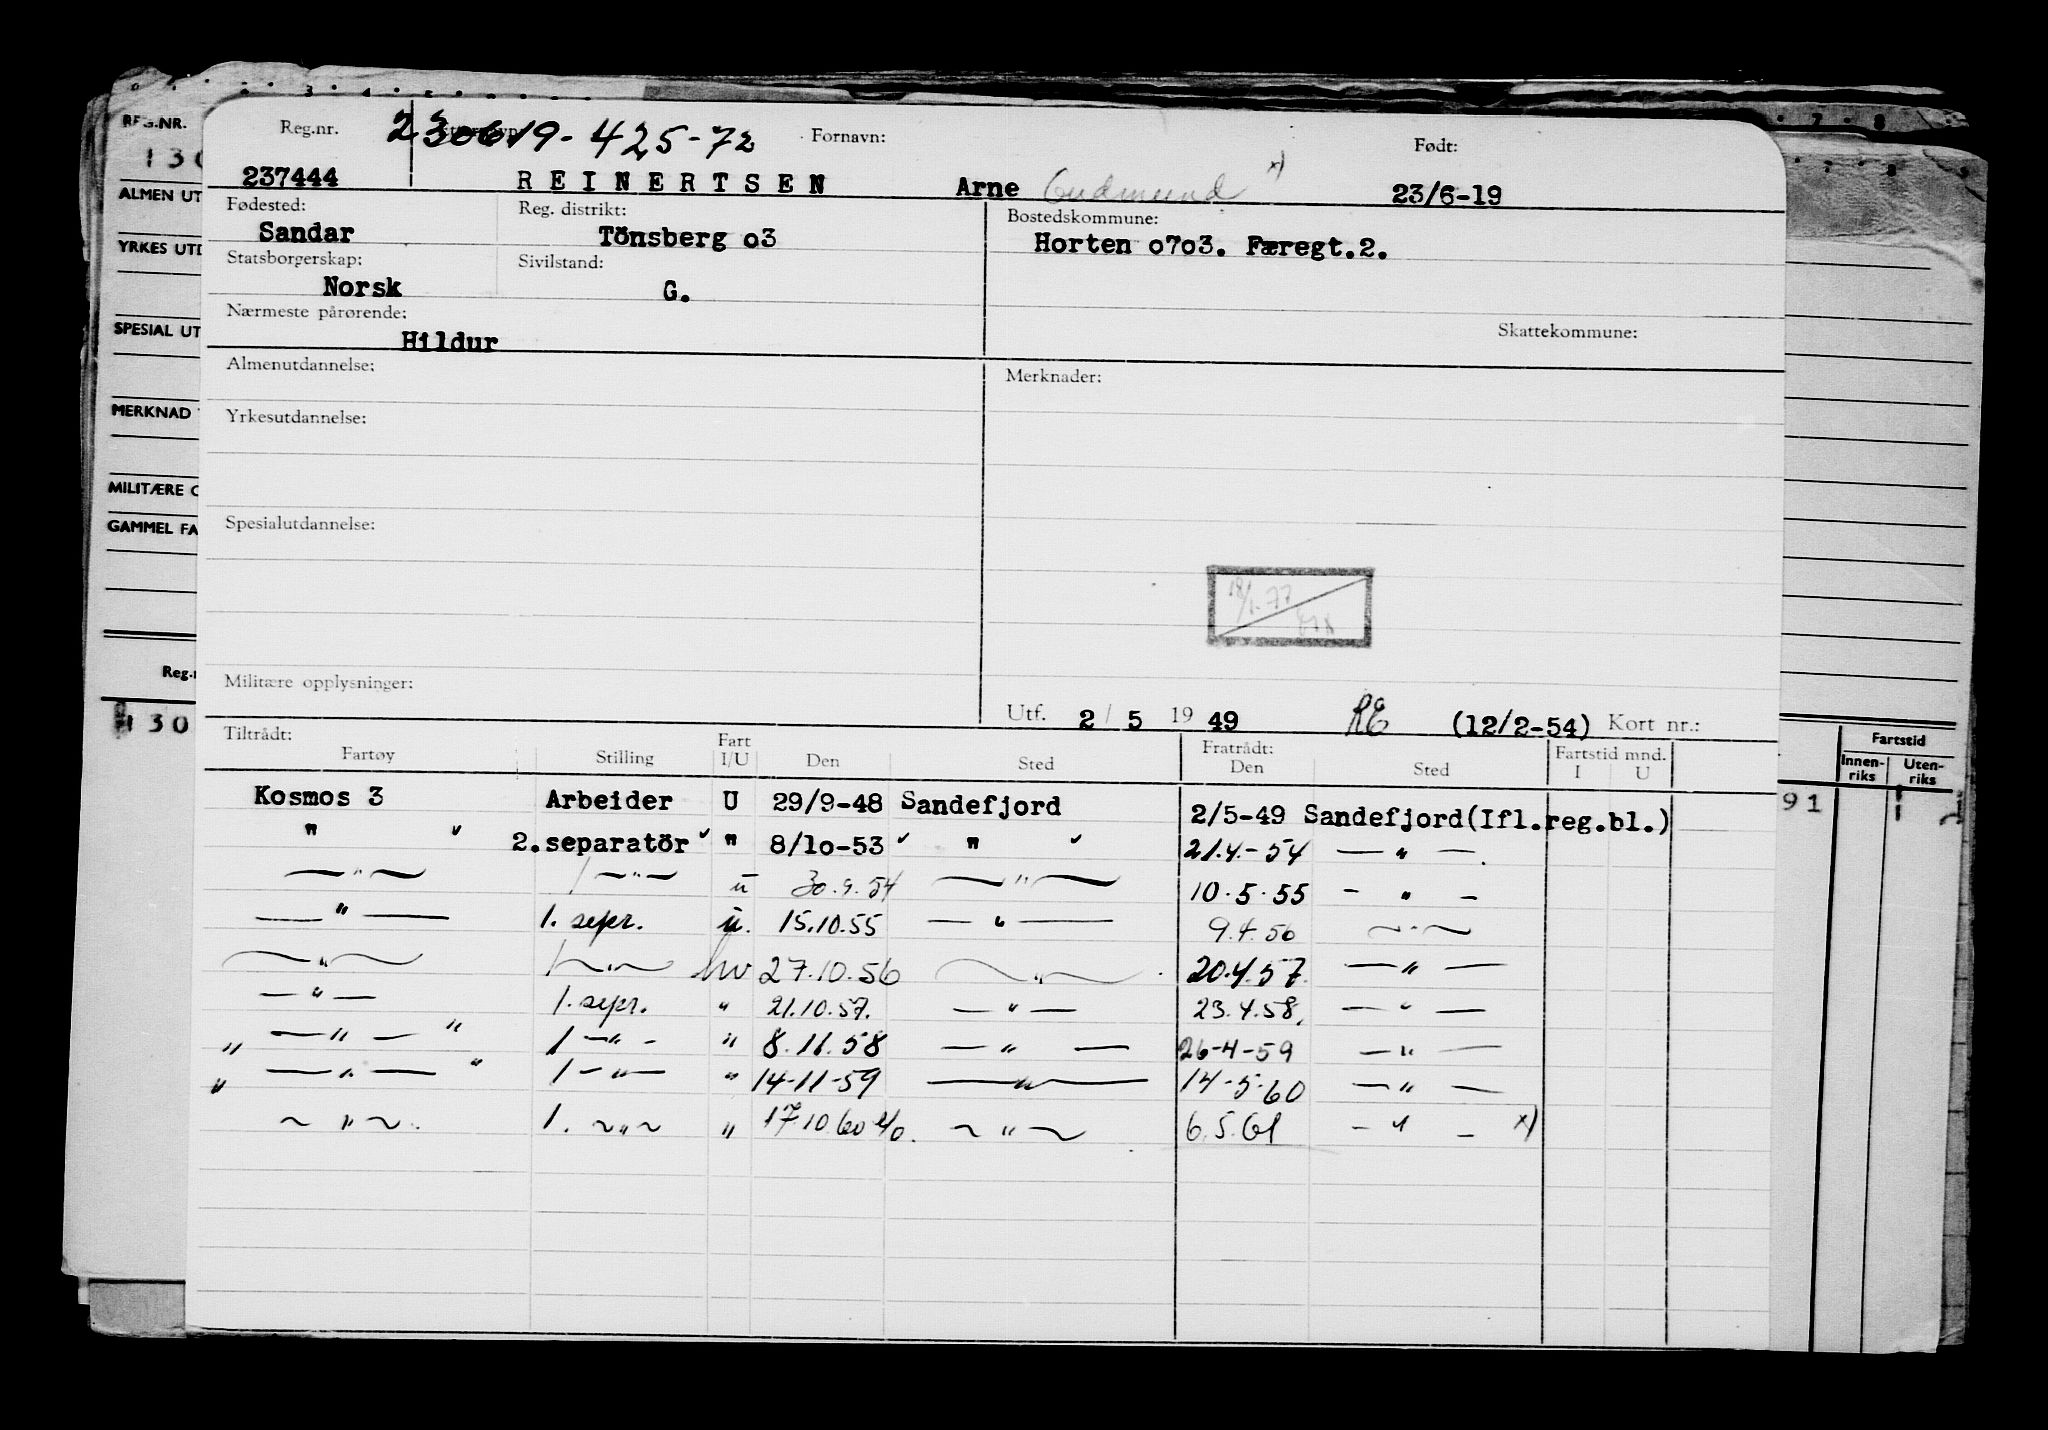 REG.NR.
130
ALMEN UT
YRKES UTD
SPESIAL UT
MERKNAD
MILITÆRE
GAMMEL FA
Reg.
130
Reg.nr. 230619-425-72 Fornavn: Født:
237444 REINERTSEN Arne Gudmund x) 23/6-19
Fødested: Reg. distrikt: Bostedskommune:
Sandar Tönsberg o3 Horten o7o3. Færegt.2.
Statsborgerskap: Sivilstand:
Norsk G.
Nærmeste pårørende: Skattekommune:
Hildur
Almenutdannelse: Merknader:
Yrkesutdannelse:
Spesialutdannelse:
18/1-77
Militære opplysninger:
Utf. 2/5 1949 RE (12/2-54) Kort nr.:
Tiltrådt: Fart Fratrådt: Fartstid mnd.
Fartøy Stilling I/U Den Sted Den Sted I U
Kosmos 3 Arbeider U 29/9-48 Sandefjord 2/5-49 Sandefjord(Ifl.reg.bl.)
" 2.separatör " 8/1o-53 " 21.4.-54 — " —.
— " — 1 — " — u 30.9.54 — " — 10.5.55 - " -
— " — 1. sepr. u. 15.10.55 — " — 9.4.56 — " —
— " — 1 — " — hv 27.10.56 — " — 20.4.57. — " —
— " — 1. sepr. " 21.10.57. — " — 23.4.58. — " —
" — " — " 1 — " - " 8.11.58 — " — 26-4-59 — " —
" — " — " 1 — " — " 14-11-59 — " — 14-5-60 — " —
~ " ~. 1. ~ " ~ " 17.10.60 ~ " ~ 6.5.61 - " - x)
Fartstid
Innen-riks Uten-riks
91